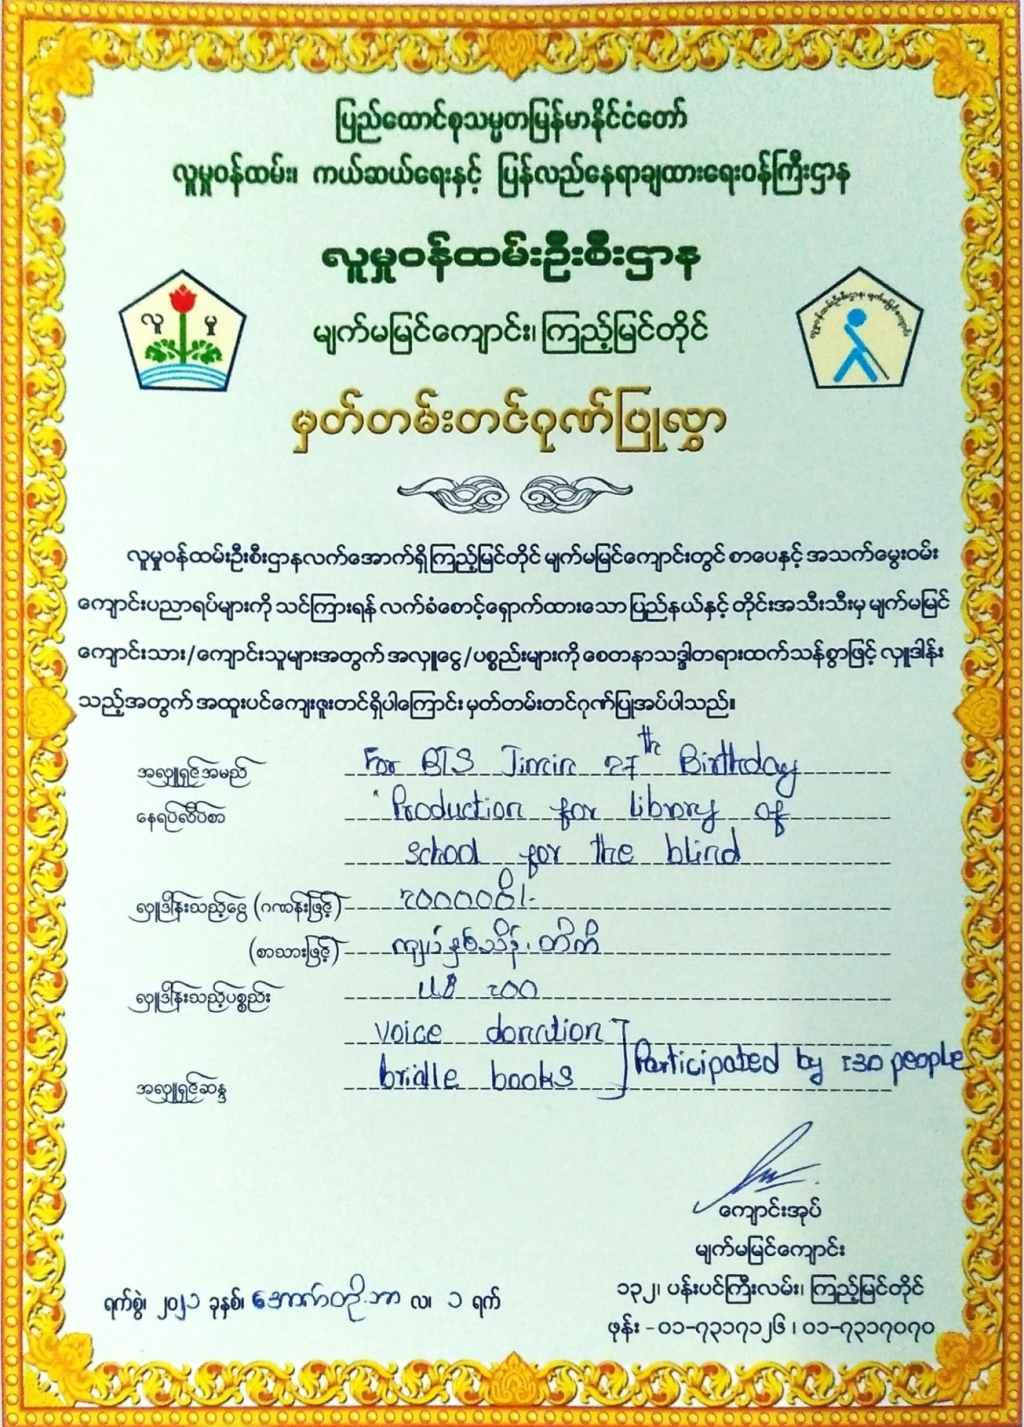 ပြည်ထောင်စုသမ္မတမြန်မာနိုင်ငံတော်
လူမှုဝန်ထမ်း၊ ကယ်ဆယ်ရေးနှင့် ပြန်လည်နေရာချထားရေးဝန်ကြီးဌာန
လူမှုဝန်ထမ်းဦးစီးဌာန
လူ မှု
မျက်မမြင်ကျောင်း၊ ကြည့်မြင်တိုင်
မှတ်တမ်းတင်ဂုဏ်ပြုလွှာ
လူမှုဝန်ထမ်းဦးစီးဌာနလက်အောက်ရှိကြည့်မြင်တိုင် မျက်မမြင်ကျောင်းတွင် စာပေနှင့် အသက်မွေးဝမ်း
ကျောင်းပညာရပ်များကို သင်ကြားရန် လက်ခံစောင့်ရှောက်ထားသော ပြည်နယ်နှင့် တိုင်းအသီးသီးမှ မျက်မမြင်
ကျောင်းသား/ကျောင်းသူများအတွက် အလှူငွေ/ပစ္စည်းများကို စေတနာသဒ္ဒါတရားထက်သန်စွာဖြင့် လှူဒါန်း
သည့်အတွက် အထူးပင်ကျေးဇူးတင်ရှိပါကြောင်း မှတ်တမ်းတင်ဂုဏ်ပြုအပ်ပါသည်။
အလှူရှင်အမည် For BTS Jimin 27th Birthday
နေရပ်လိပ်စာ Production for library of
school for the blind
လှူဒါန်းသည့်ငွေ (ဂဏန်းဖြင့်) ၂၀၀၀၀၀ိ/-
(စာသားဖြင့်) ကျပ်နှစ်သိန်းတိတိ
လှူဒါန်းသည့်ပစ္စည်း ၂၀၀
voice donation
အလှူရှင်ဆန္ဒ bridle books Participated by 130 people
ကျောင်းအုပ်
မျက်မမြင်ကျောင်း
၁၃၂၊ ပန်းပင်ကြီးလမ်း၊ ကြည့်မြင်တိုင်
ရက်စွဲ၊ ၂၀၂၁ ခုနှစ်၊ အောက်တိုဘာ လ၊ ၁ ရက်
ဖုန်း - ၀၁-၇၃၁၇၁၂၆ ၊ ၀၁-၇၃၁၇၀၇၀